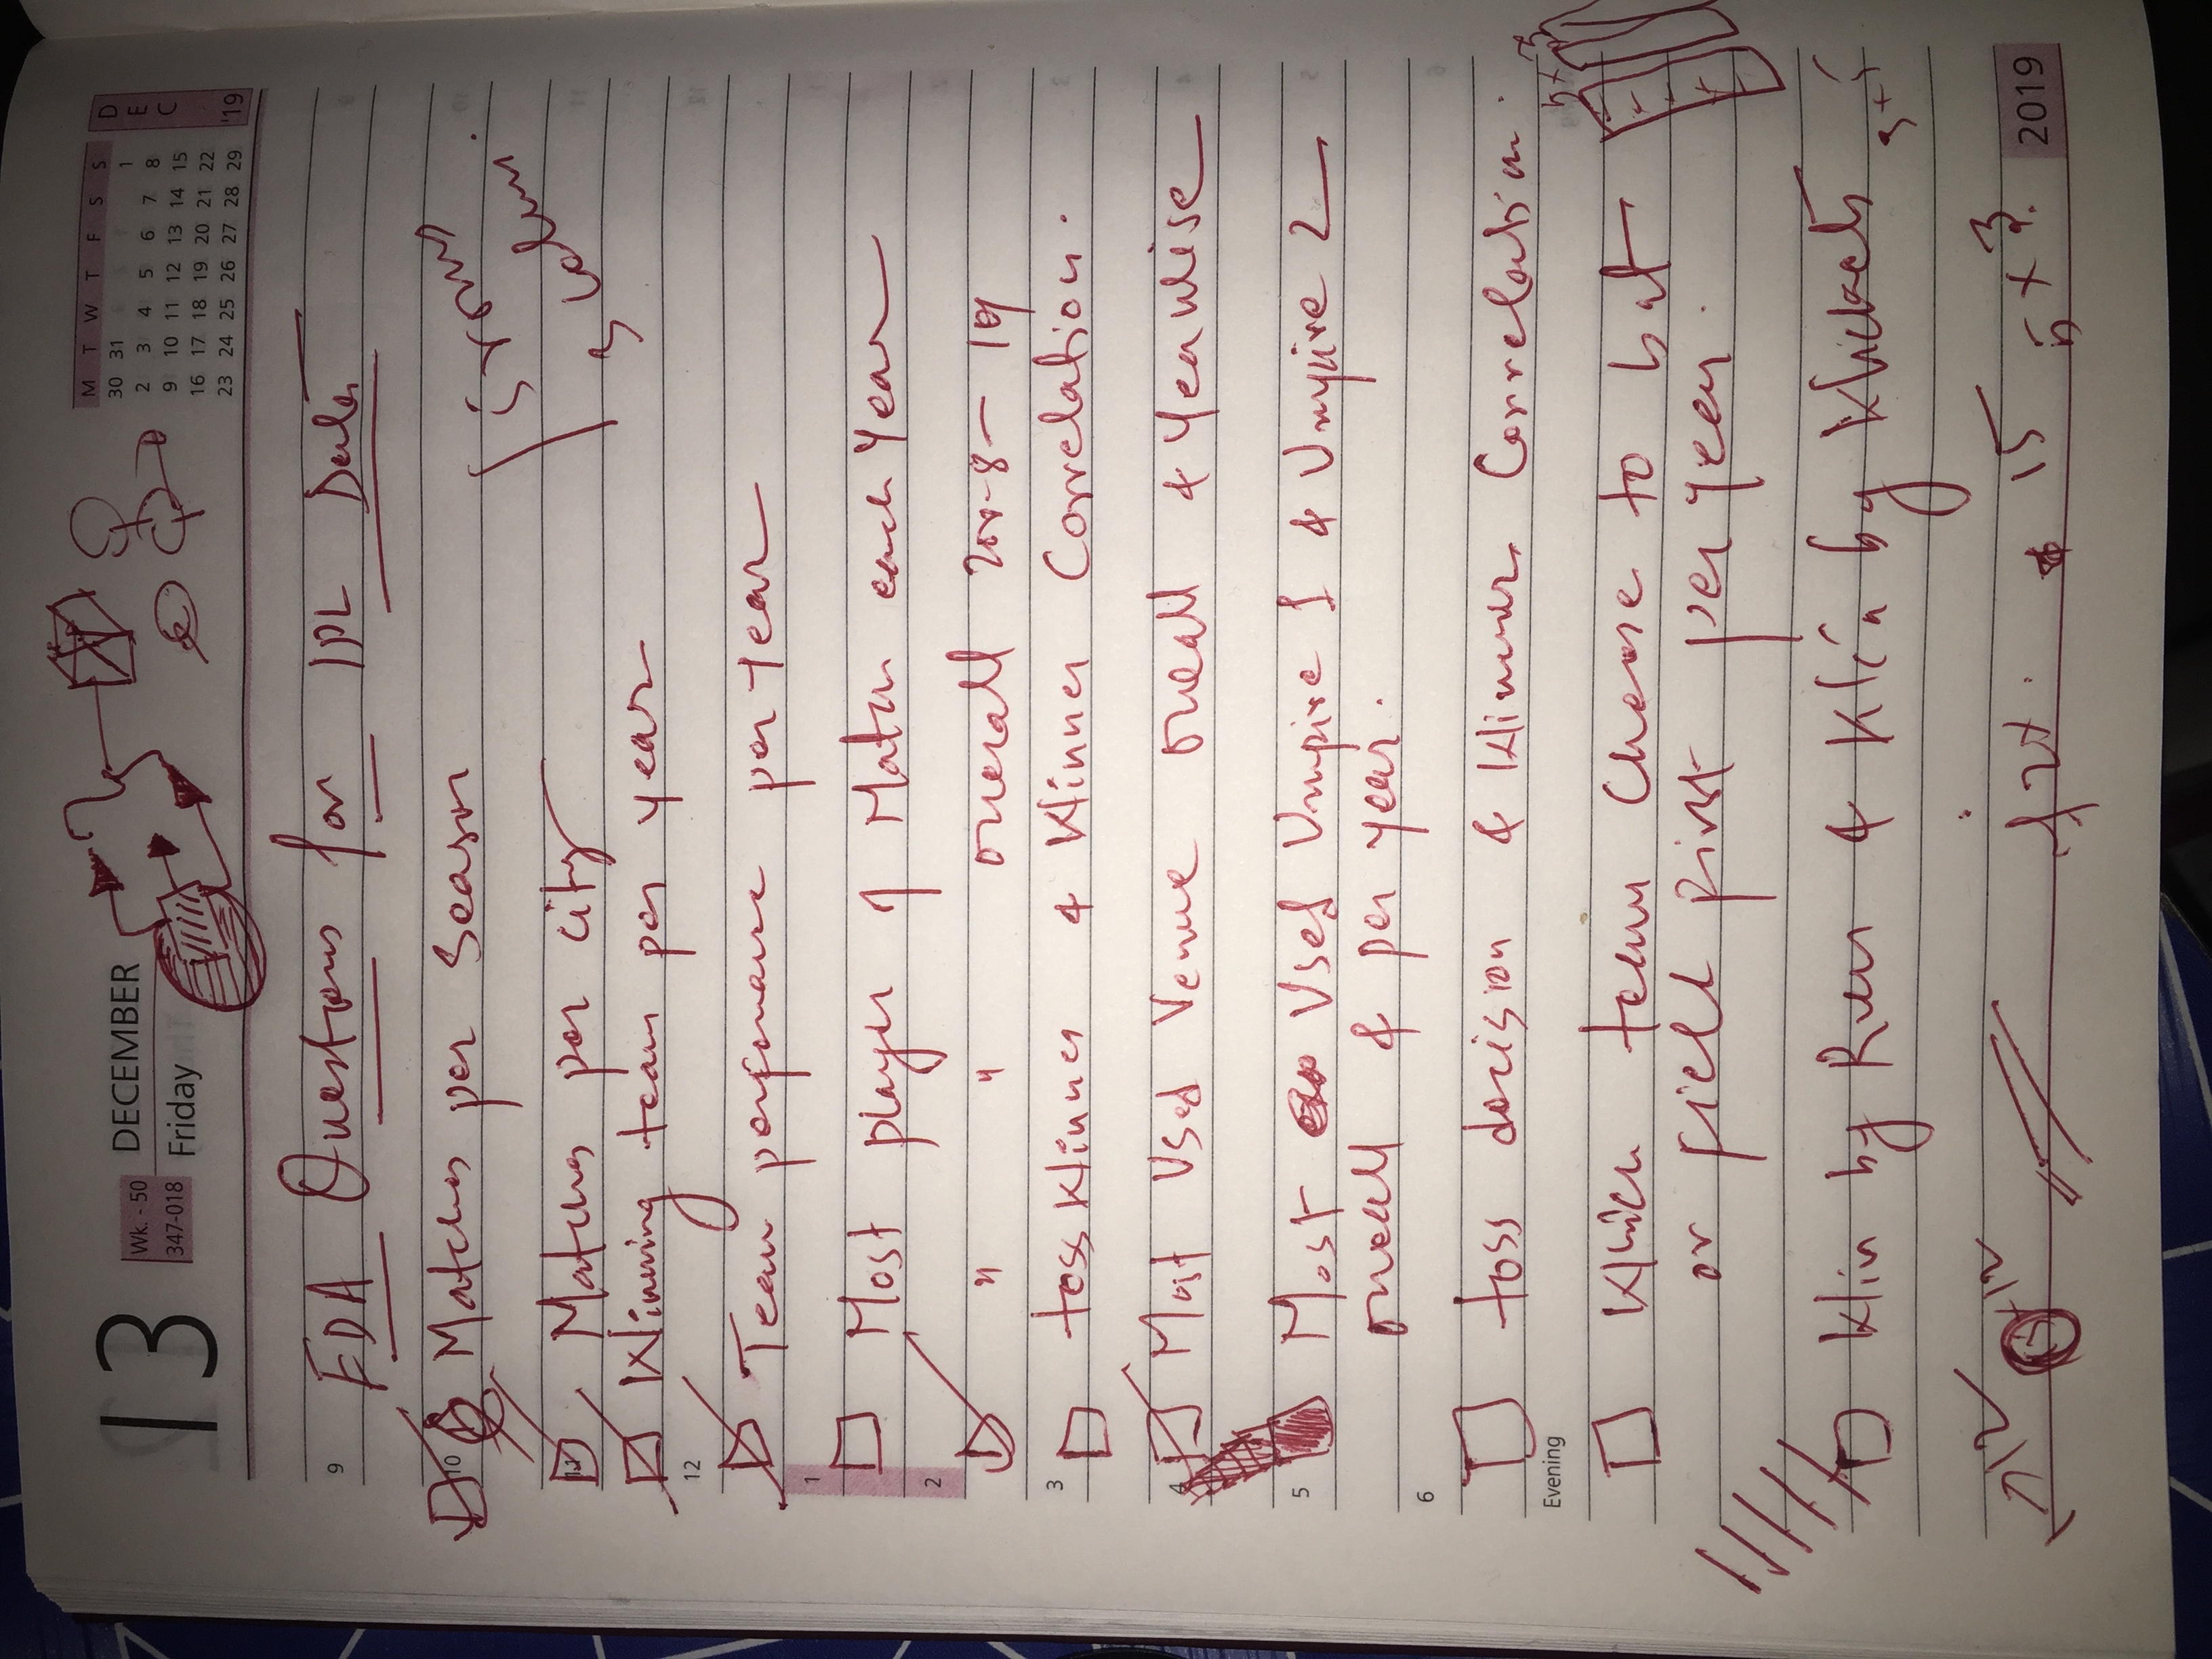 13
Wk. - 50
347-018
DECEMBER
Friday
M T W T F S S
30 31 1
2 3 4 5 6 7 8
9 10 11 12 13 14 15
16 17 18 19 20 21 22
23 24 25 26 27 28 29
DEC '19
9 EDA Questions for IPL Data
10 Matches per Season
5 rows
3 colums.
11 Matches per city
Winning team per year
12
Team performance per year
1
Most player of Match each Year
2
" " overall 2008-19
3
toss Winner & Winner Correlation.
4 Most Used Venue overall & Yearwise
5 Most Used Umpire 1 & Umpire 2
overall & per year.
6
toss decision & Winner Correlation.
Evening
5 x 3
Which team choose to bat
or field first per year.
Win by Run & Win by Wickets
12
+12
15 5 x 3
2019